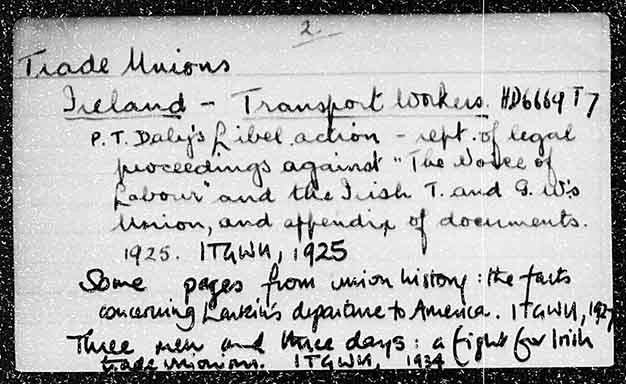 2.
Trade Unions
Ireland - Transport Workers. HD6664 T7
P. T. Daly's Libel action - rept. of legal
proceedings against "The Voice of
Labour" and the Irish T. and G. W's
Union, and appendix of documents.
1925. ITGWU, 1925
Some pages from union history: the facts
concerning Larkin's departure to America. ITGWU, 1927
Three men and three days: a fight for Irish
trade unionism. ITGWU, 1934